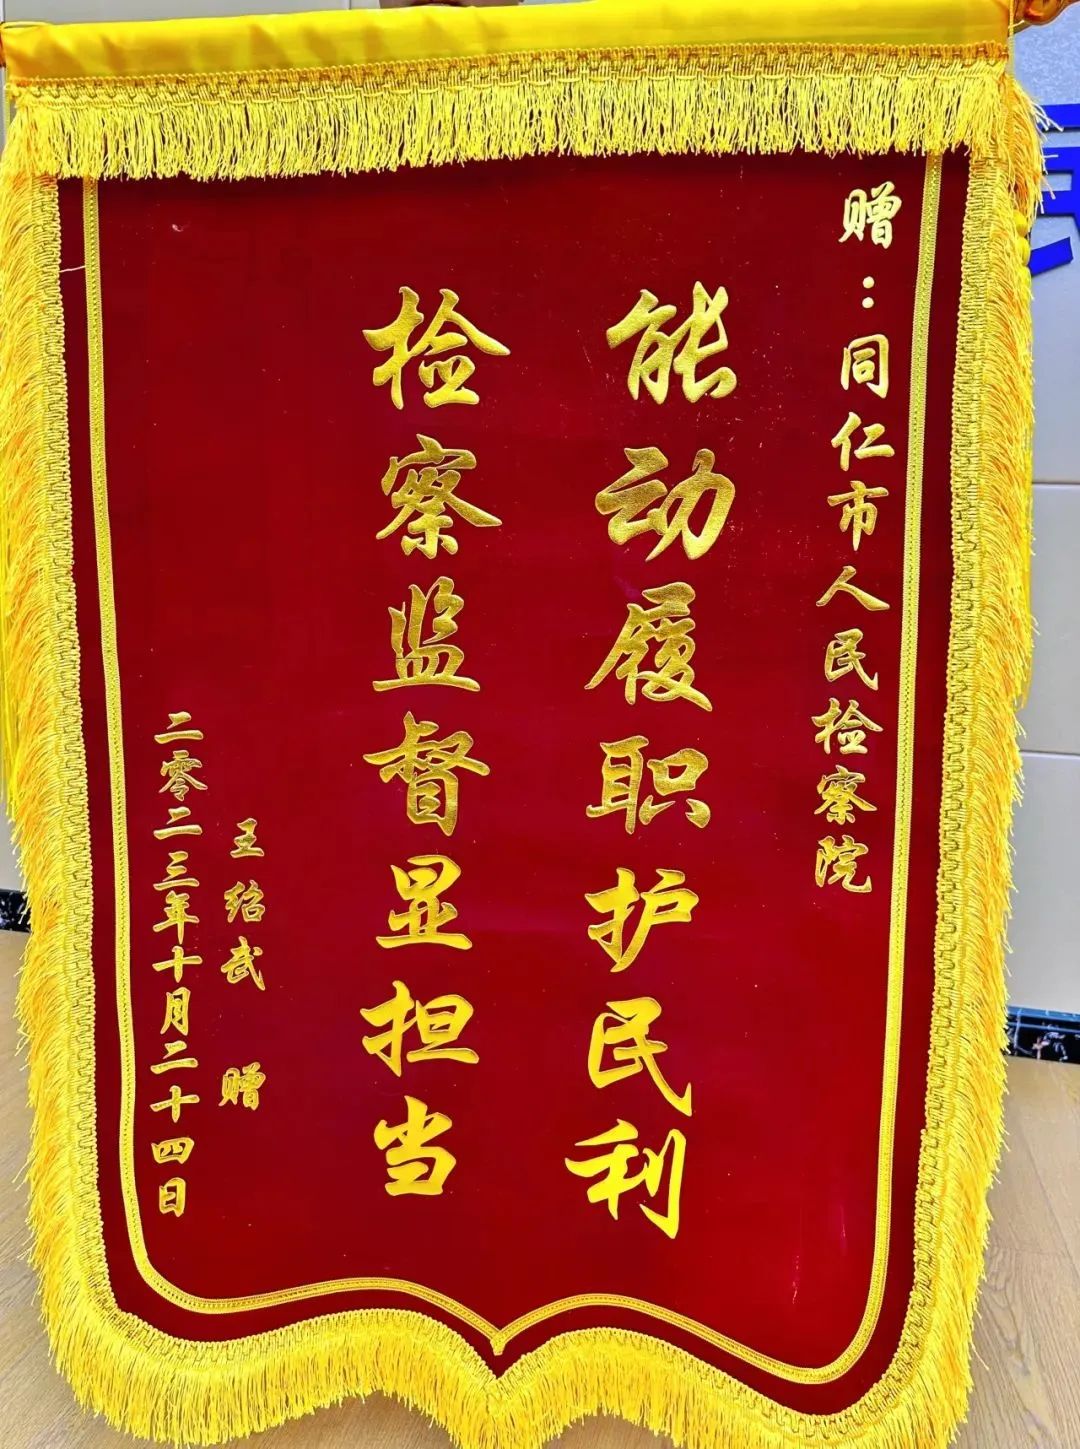 赠：同仁市人民检察院
能动履职护民利
检察监督显担当
王绍武 赠
二零二三年十月二十四日